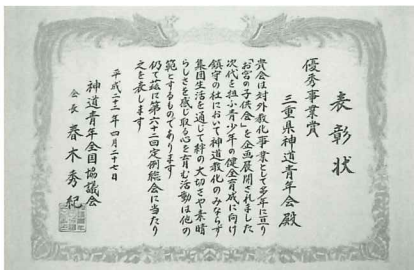 表彰状
優秀事業賞
三重県神道青年会殿
貴会は対外教化事業として多年に亘り
お宮の子供会」を企画展開されました
次代を担ふ青少年の健全育成に向け
鎮守の杜において神道教化のみならず
集団生活を通じて絆の大切さや素晴
らしさを感じ取る心を育む活動は他の
範とするものであります
仍て茲に第六十二回定例総会に当たり
之を表します
平成二十三年四月二十七日
神道青年全国協議会
会長 春木秀紀